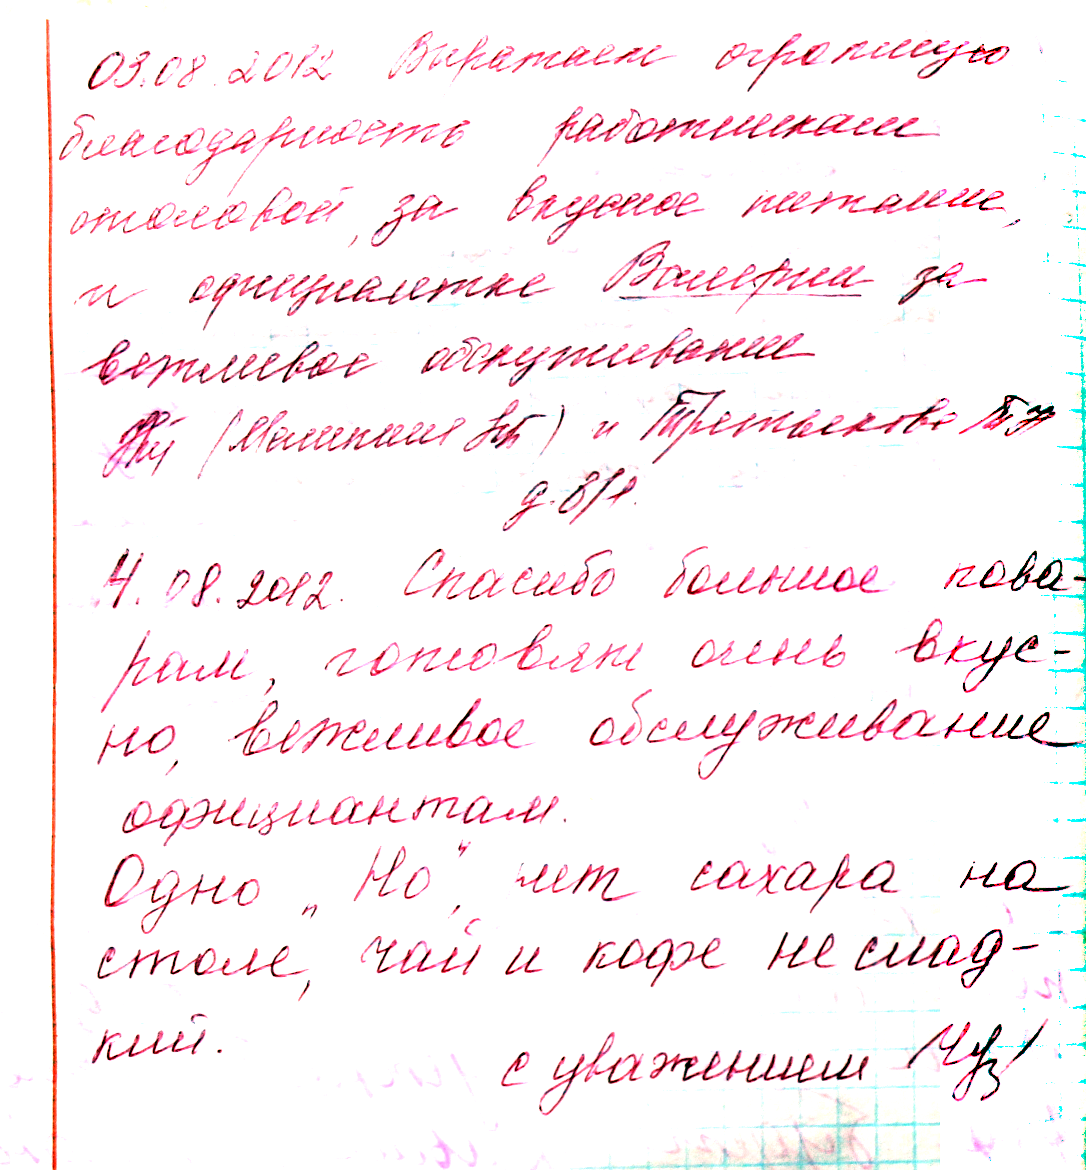 03.08.2012 Выражаем огромную
благодарность работникам
столовой, за вкусное питание,
и официантке Валерии за
вежливое обслуживание
и Третьякова
д. 8/1.
4.08.2012. Спасибо большое пова-
рам, готовят очень вкус-
но, вежливое обслуживание
официантам.
Одно „Но", нет сахара на
столе, чай и кофе не слад-
кий.
с уважением